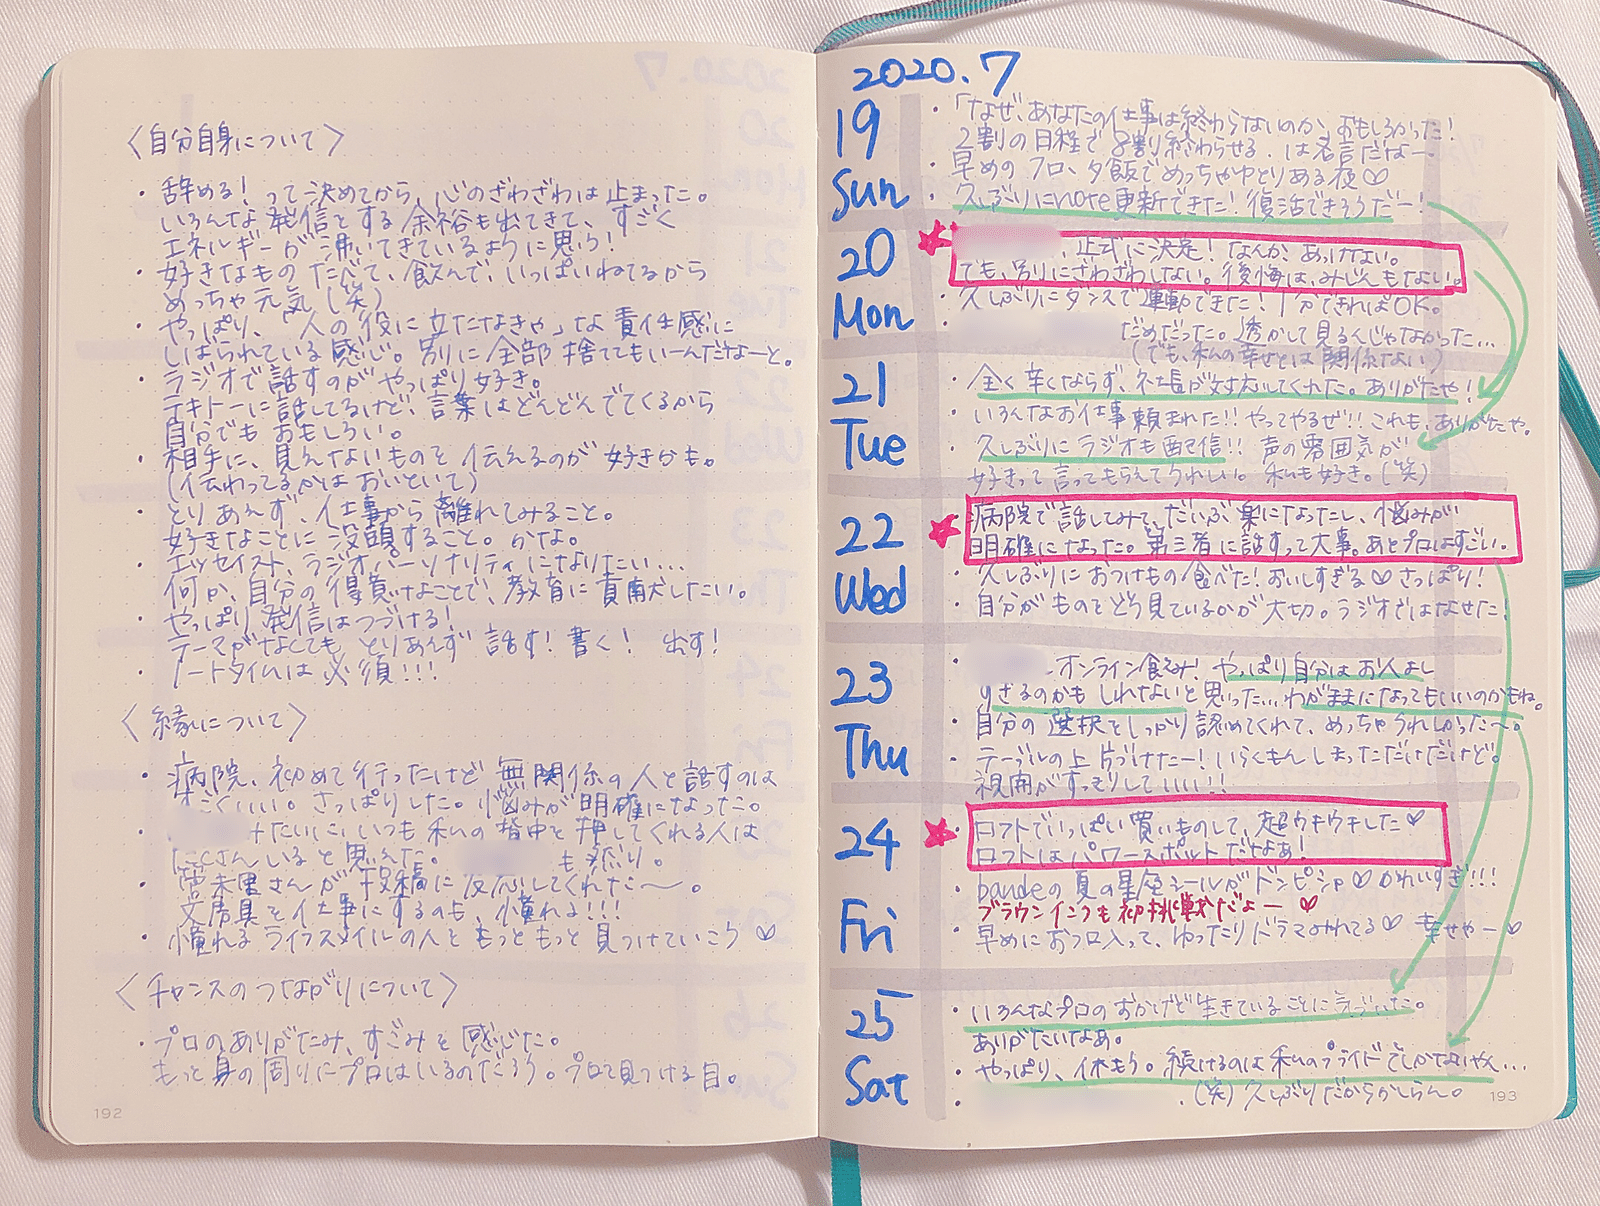 〈自分自身について〉
・辞める！って決めてから、心のざわざわは止まった。
いろんな発信とする余裕も出てきて、すごく
エネルギーが沸いてきているように思う！
・好きなものたべて、飲んで、いっぱいねてるから
めっちゃ元気(笑)
・やっぱり、「人の役に立たなきゃ」な責任感に
しばられている感じ。別に全部捨ててもいーんだなーと。
・ラジオで話すのがやっぱり好き。
テキトーに話してるけど、言葉はどんどんでてくるから
自分でもおもしろい。
・相手に、見えないものを伝えるのが好きかも。
(伝わってるかはおいといて)
・とりあえず、仕事から離れてみること。
好きなことに没頭すること。かな。
・エッセイスト、ラジオパーソナリティになりたい…
何か、自分の得意なことで、教育に貢献したい。
・やっぱり発信はつづける！
テーマがなくてもとりあえず話す！書く！出す！
・ノートタイムは必須!!!
〈縁について〉
・病院、初めて行ったけど無関係の人と話すのは
すごくいい。さっぱりした。悩みが明確になった。
・みたいに、いつも私の背中を押してくれる人は
たくさんいると思えた。 も然り。
・さんが投稿に反応してくれた〜。
文房具を仕事にするのも、憧れる!!!
・憧れるライフスタイルの人ともっともっと見つけていこう♡
〈チャンスのつながりについて〉
・プロのありがたみ、すごみを感じた。
もっと身の周りにプロはいるのだろう。プロを見つける目。
192
2020.7
19
Sun
・「なぜ、あなたの仕事は終わらないのか、おもしろかった！
2割の日程で8割終わらせる.は名言だなー
・早めのフロ、夕飯でめっちゃゆとりある夜♡
・久しぶりにnote更新できた！復活できそうだー！
20
Mon
、正式に決定！なんか、あっけない。
でも、別にざわざわしない。後悔は、みじんもない。
・久しぶりにダンスで運動できた！1分できればOK。
・だめだった。透かして見るんじゃなかった…
(でも、私の幸せとは関係ない)
21
Tue
・全く辛くならず、社長が対応してくれた。ありがたや！
・いろんなお仕事頼まれた!!やってやるぜ!!これも、ありがたや。
・久しぶりにラジオも配信!! 声の雰囲気が
好きって言ってもらえてうれしい。私も好き。(笑)
22
Wed
・病院で話してみて、だいぶ楽になったし、悩みが
明確になった。第三者に話すって大事。あとプロはすごい。
・久しぶりにおつけもの食べた！おいしすぎる♡さっぱり！
・自分がものをどう見ているかが大切。ラジオではなせた！
23
Thu
・オンライン飲み！やっぱり自分はお人よし
すぎるのかもしれないと思った…わがままになってもいいのかもね。
・自分の選択をしっかり認めてくれて、めっちゃうれしかった〜。
・テーブルの上片づけたー！いらくもんしまっただけだけど。
視界がすっきりしていい!!
24
Fri
・ロフトでいっぱい買いものして、超ウキウキした♡
ロフトはパワースポットだなぁ！
・bandeの夏の星色シールがドンピシャ♡かわいすぎ!!!
ブラウンインクも初挑戦だよー ♡
・早めにおフロ入って、ゆったりドラマみれてる♡ 幸せやー♡
25
Sat
・いろんなプロのおかげで生きていることに気づいた。
ありがたいなぁ。
・やっぱり、休もう。続けるのは私のプライドでしかないやん…
・.(笑)久しぶりだからかしらん。
193